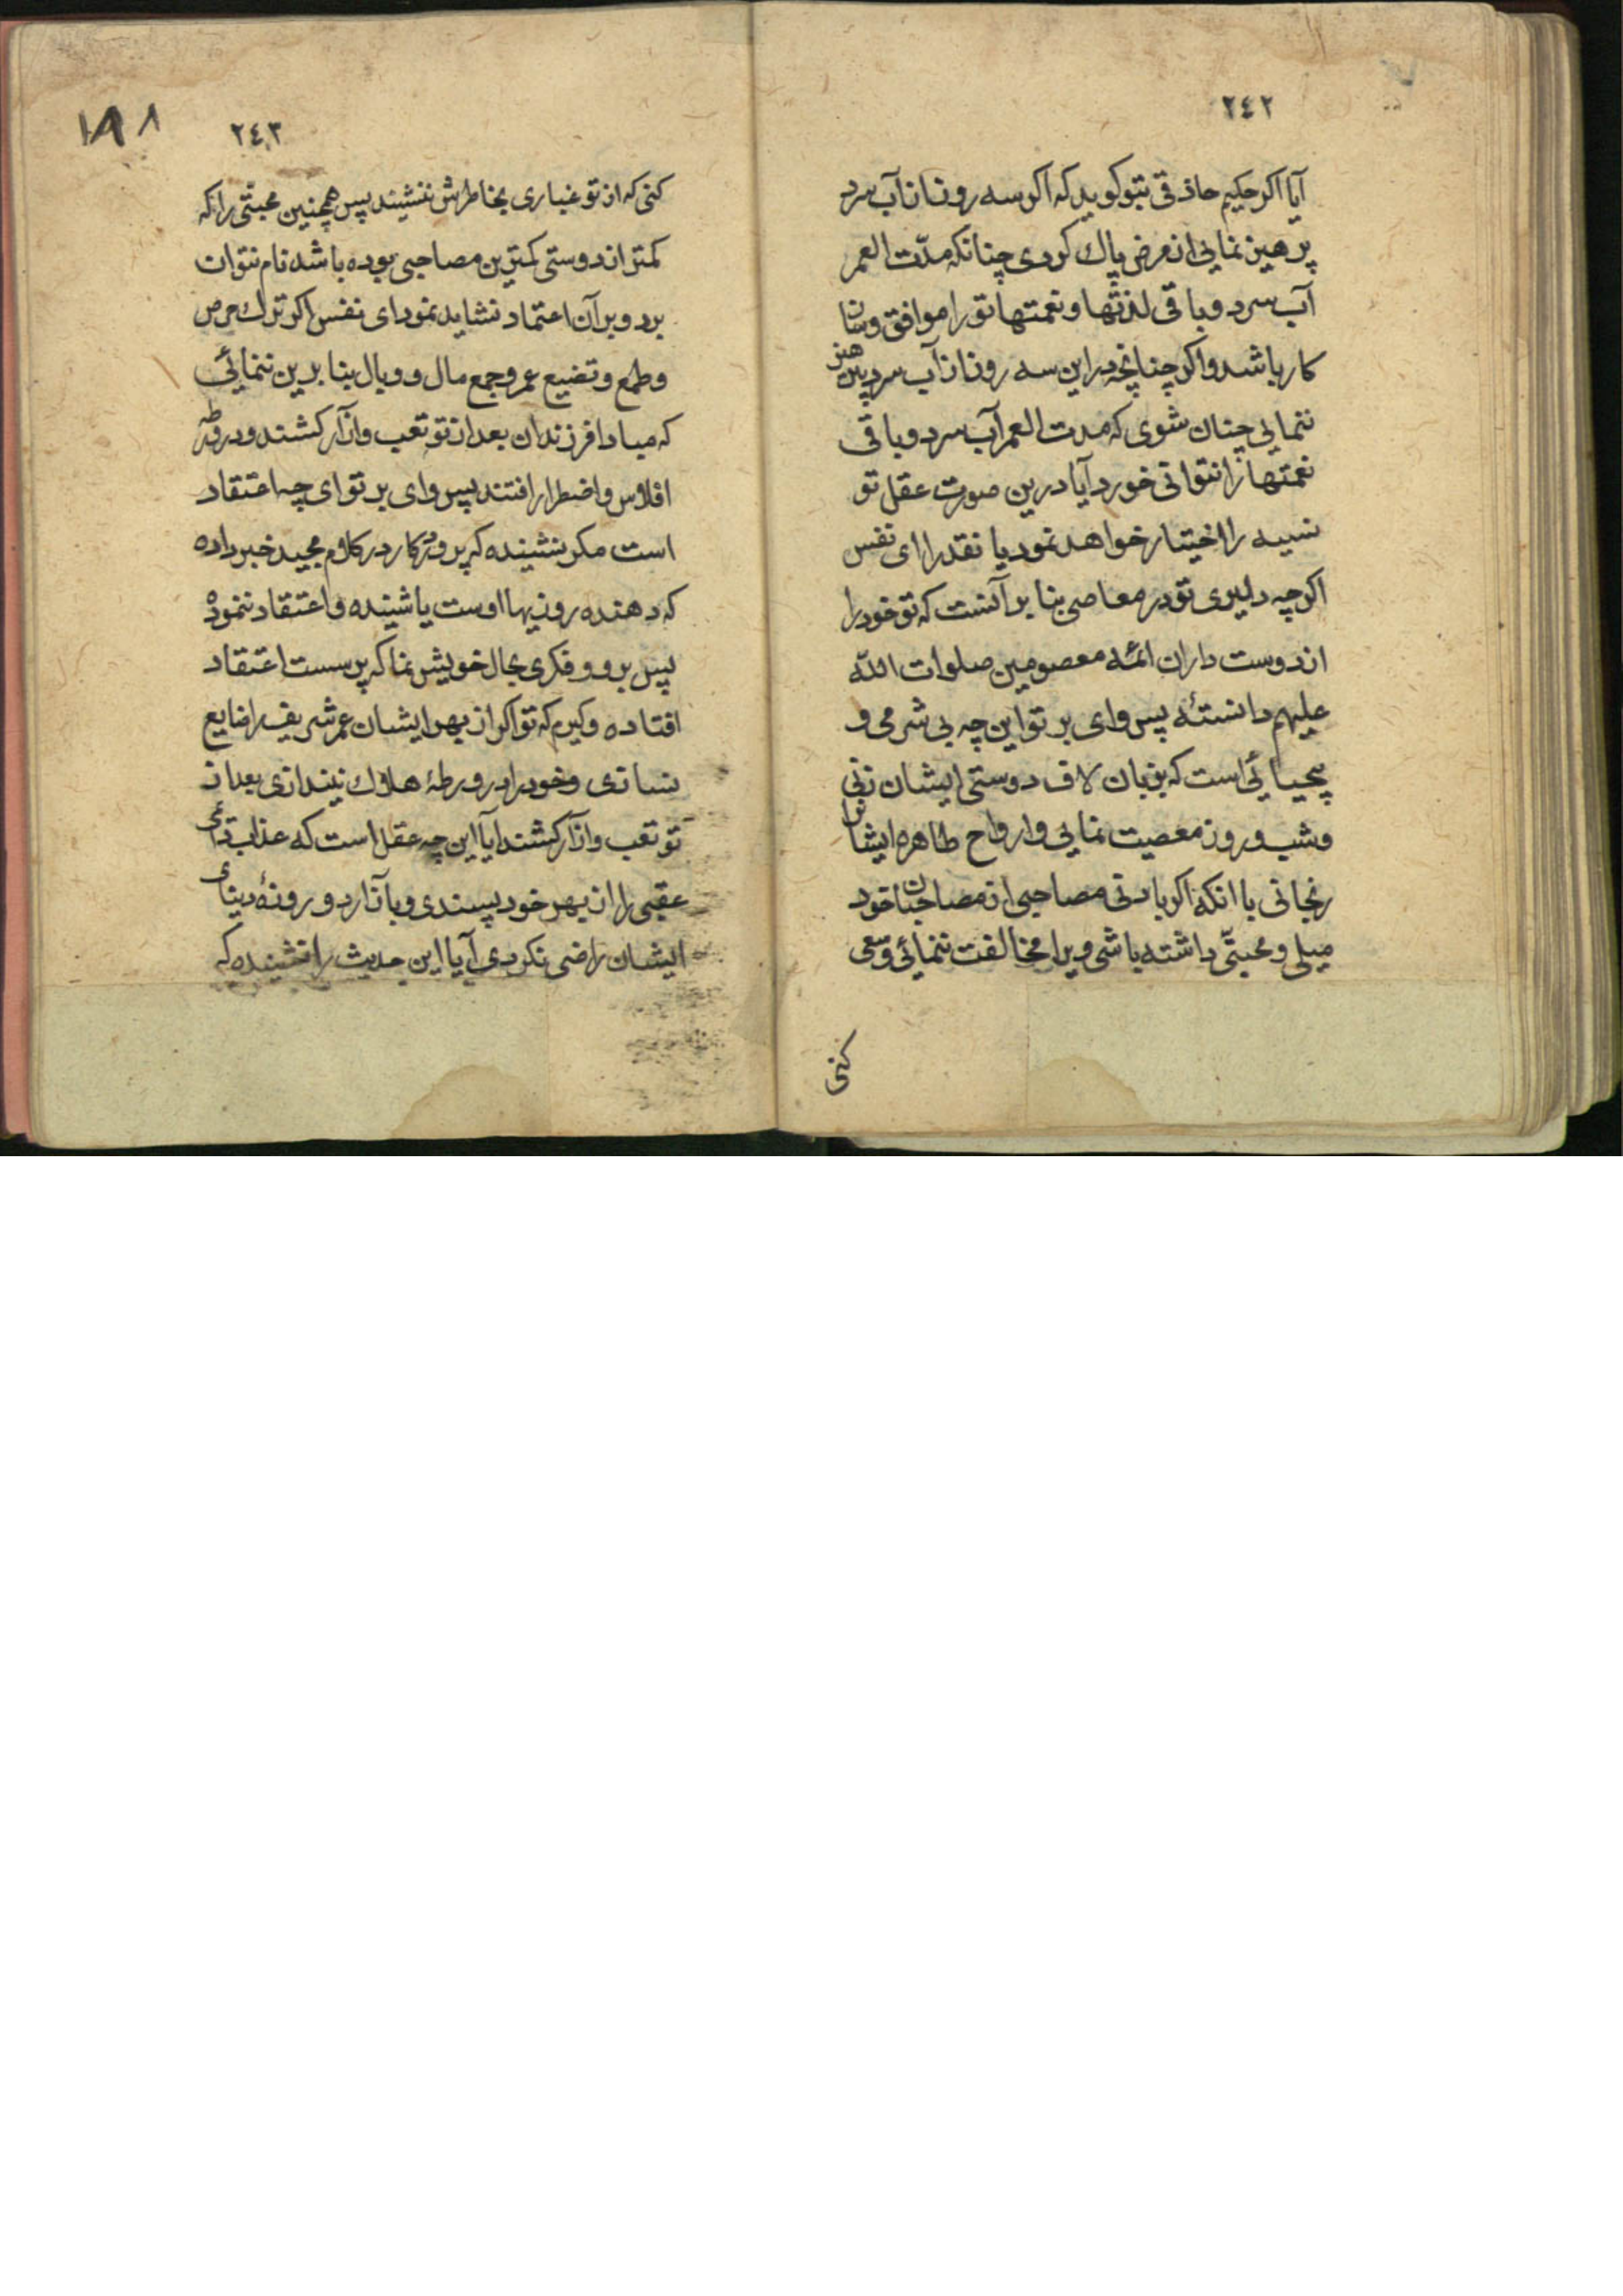 ٢٤٢
آیا اکر حکیم حاذقی بتو کوید که اکر سه روز از آب سرد
پرهیز نمایی از مرض پاک کردی چنانکه مدّت العمر
آب سرد و باقی لذتها و نعمتها تو را موافق و سازن
کار باشد و اکر چنانچه در این سه روز از آب سرد پرهیز
ننمایی چنان شوی که مدت العمر آب سرد و باقی
نعمتها را نتوانی خورد آیا درین صورت عقل تو
نسیه را اختیار خواهد نمود یا نقد را ای نفس
اکر چه دلیری تو در معاصی بنا بر آنست که تو خود را
از دوست داران ائمه معصومین صلوات الله
علیهم دانستهٔ پس وای بر تو این چه بی شرمی و
بیحیائی است که بزبان لاف دوستی ایشان زنی
و شب و روز معصیت نمایی و ارواح طاهره ایشان را
رنجانی با انکه اکر با دنی مصاحبی از مصاحبان خود
میلی و محبتّی داشته باشی ویرا مخالفت ننمائی و سعی
کنی
٢٤٣
١٨١
کنی که از تو غباری بخاطرش ننشیند پس همچنین محبتّی را که
کمتر از دوستی کمترین مصاحبی بوده باشد نام نتوان
برد و بر آن اعتماد نشاید نمود ای نفس اکر ترك حرص
و طمع و تضیع عمر و جمع مال و وبال بنا برین ننمائی
که مبادا فرزندان بعد از تو تعب و آزار کشند و در ورطه
افلاس و اضطرار افتند پس وای بر تو ای چه اعتقاد
است مکر نشینده که پروردکار در کلام مجید خبر داده
که دهنده روزیها اوست یا شینده و اعتقاد ننموده
پس برو و فکری بحال خویش نما که پر سست اعتقاد
افتاده و کیرم که تو اکر از بهر ایشان عمر شریف را ضایع
نسازی و خود را در ورطهٔ هلاك نیندازی بعد از
تو تعب و آزار کشند ایا این چه عقل است که عذاب
عقبی را از بهر خود پسندی و با آزار دو روزهٔ دنیای
ایشان راضی نکردی آیا این حدیث را نشینده که